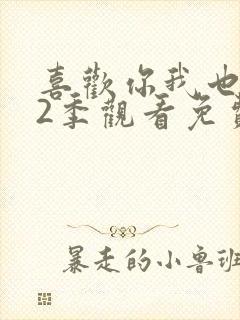 喜歡你我也
2季觀看免費
暴走的小魯班